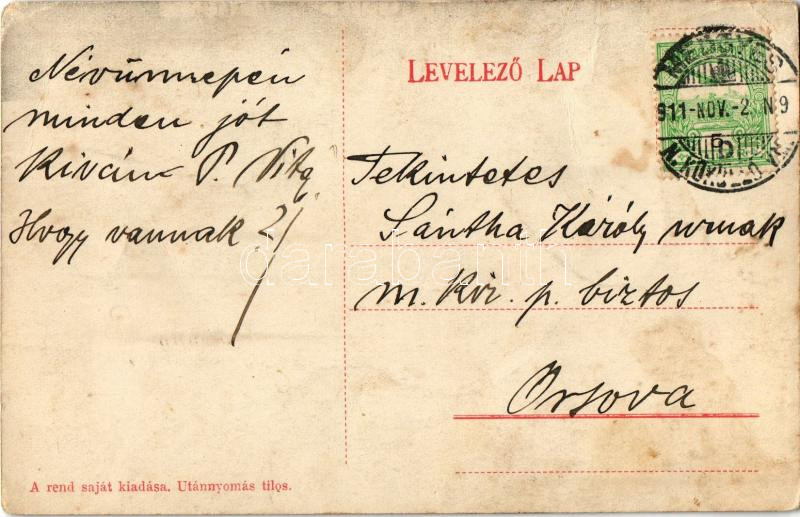 Névünnepén
minden jót
kiván P. Vita
Hogy vannak?
LEVELEZŐ LAP
911-NOV.-2. N 9
Tekintetes
Sántha Károly urnak
m. kir. p. biztos
Orsova
A rend saját kiadása. Utánnyomás tilos.
darabanth